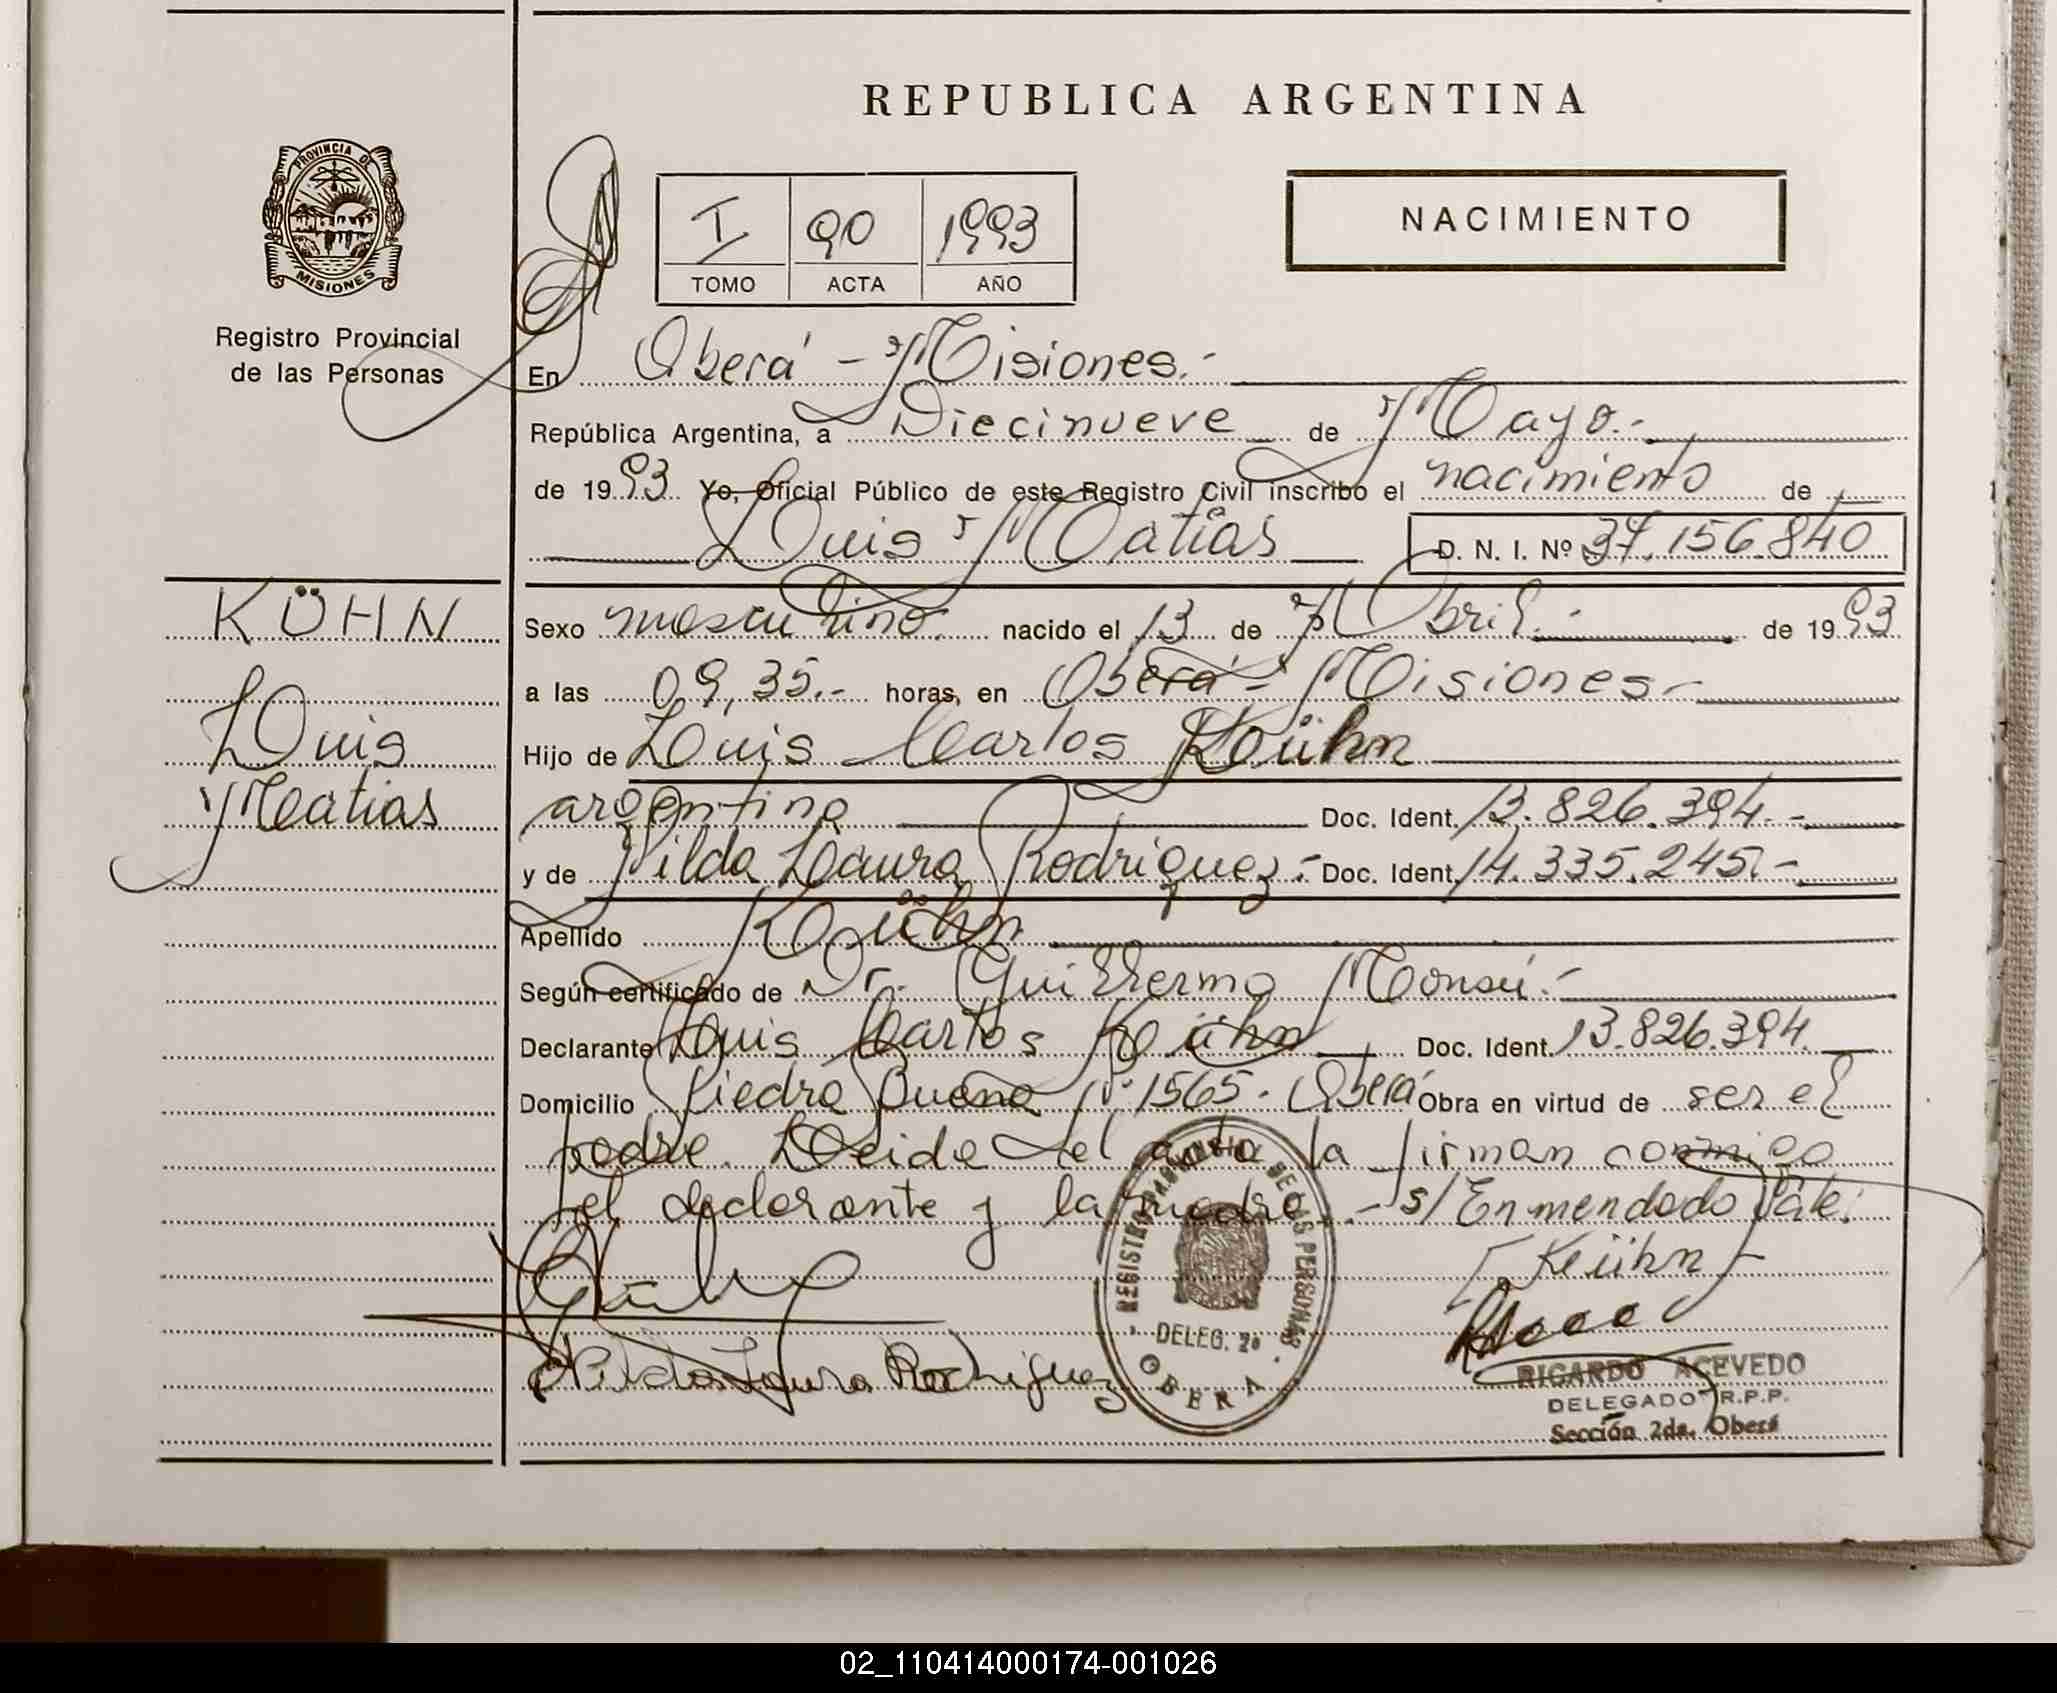 REPUBLICA ARGENTINA
PROVINCIA DE
MISIONES
Registro Provincial
de las Personas
I 90 1993
TOMO ACTA AÑO
NACIMIENTO
En Oberá - Misiones.-
República Argentina, a Diecinueve de Mayo.-
de 1993 Yo, Oficial Público de este Registro Civil inscribo el nacimiento de
Luis Matías D. N. I. Nº 37.156.840
KÜHN
Luis
Matias
Sexo masculino. nacido el 13 de Abril.- de 1993
a las 09,35.- horas, en Oberá - Misiones-
Hijo de Luis Carlos Kühn
argentino Doc. Ident. 13.826.394.-
y de Nilda Laura Rodriguez.- Doc. Ident. 14.335.245.-
Apellido Kühn
Según certificado de Dr. Guillermo Monsú.-
Declarante Luis Carlos Kühn Doc. Ident. 13.826.394.
Domicilio Piedra Buena Nº 1565. Oberá Obra en virtud de ser el
padre. Leida el acta la firman conmigo
el declarante y la madre.- s/Enmendado Vale:
Kühn
Nilda Laura Rodriguez
REGISTRO PROVINCIAL DE LAS PERSONAS
DELEG. 2a
OBERA
RICARDO ACEVEDO
DELEGADO R.P.P.
Sección 2da. Oberá
02_110414000174-001026